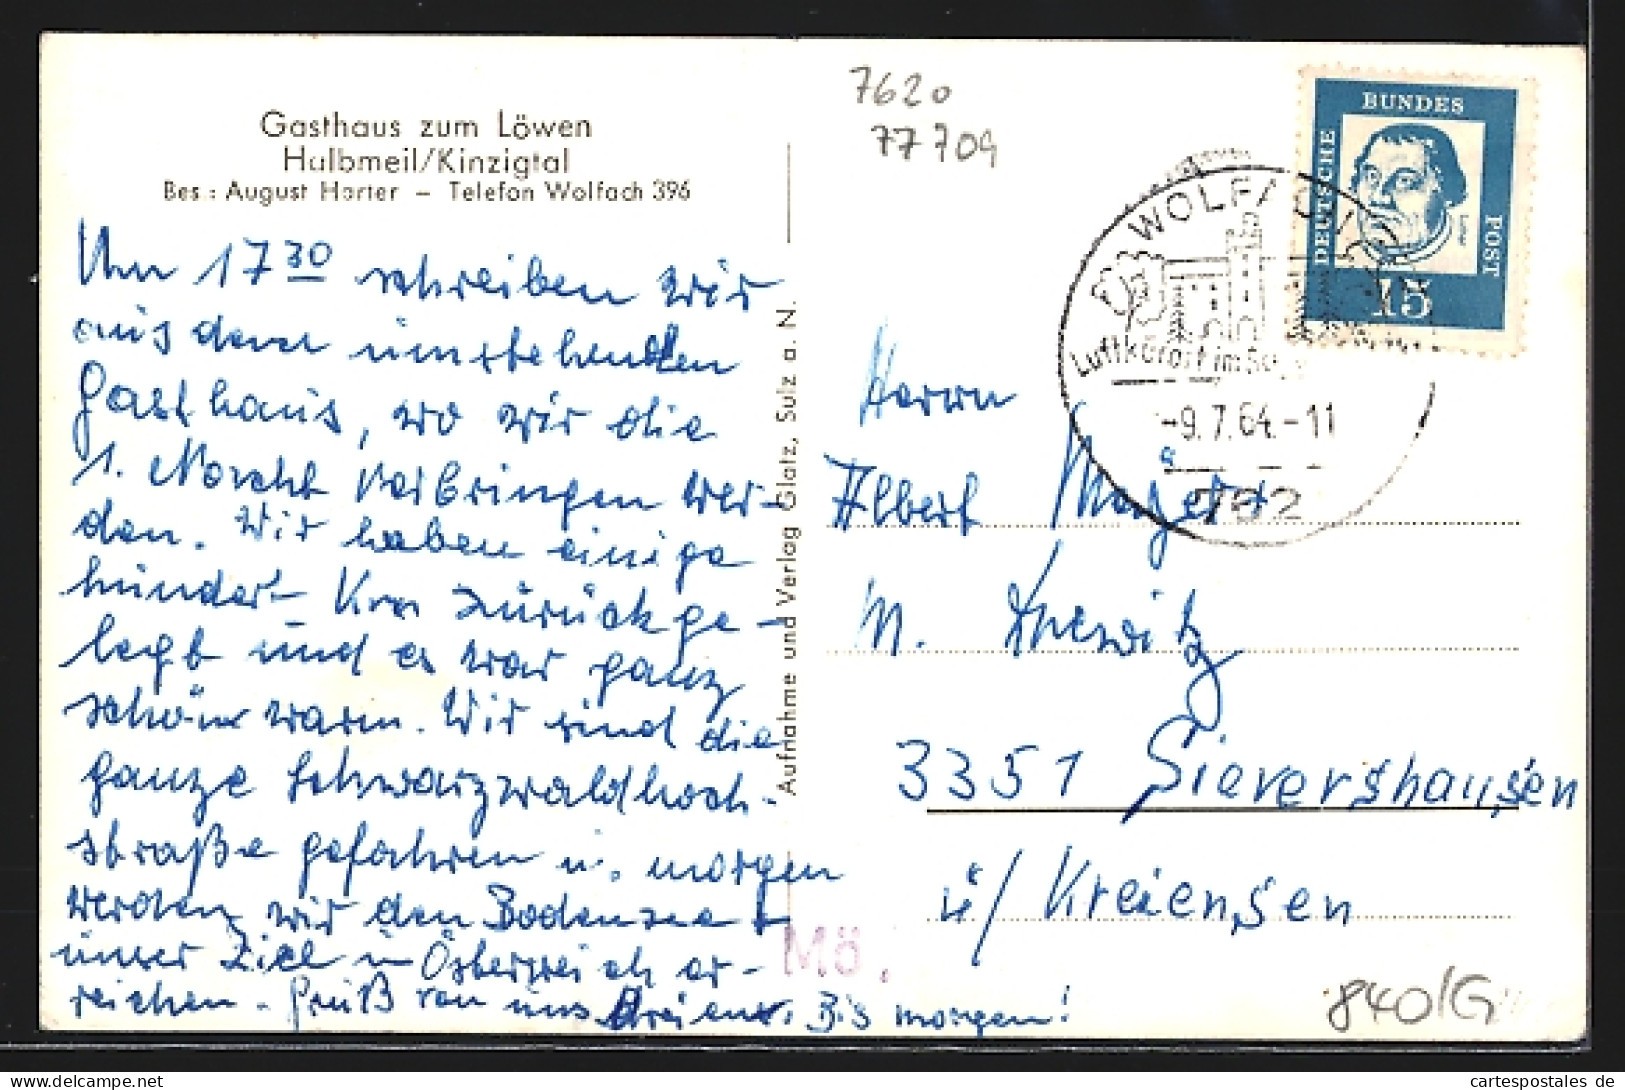 Gasthaus zum Löwen
Hulbmeil/Kinzigtal
Bes.: August Harter – Telefon Wolfach 396
Um 17 30 schreiben wir
aus dem umstehenden
Gasthaus, wo wir die
1. Nacht verbringen wer-
den. Wir haben einige
hundert Km zurückge-
legt und es war ganz
schön warm. Wir sind die
ganze Schwarzwaldhoch-
straße gefahren u. morgen
werden wir den Bodensee +
unser Ziel in Österreich er-
reichen. Gruß von uns Dreien. Bis morgen!
Aufnahme und Verlag Glatz, Sulz a. N.
Mö.
7620
77709
DEUTSCHE BUNDES POST
15
WOLFACH
Luftkurort im
-9.7.64.-11
762
Herrn
Albert
M.
3351 Sievershausen
ü/ Kreiensen
840/G
cartespostales de